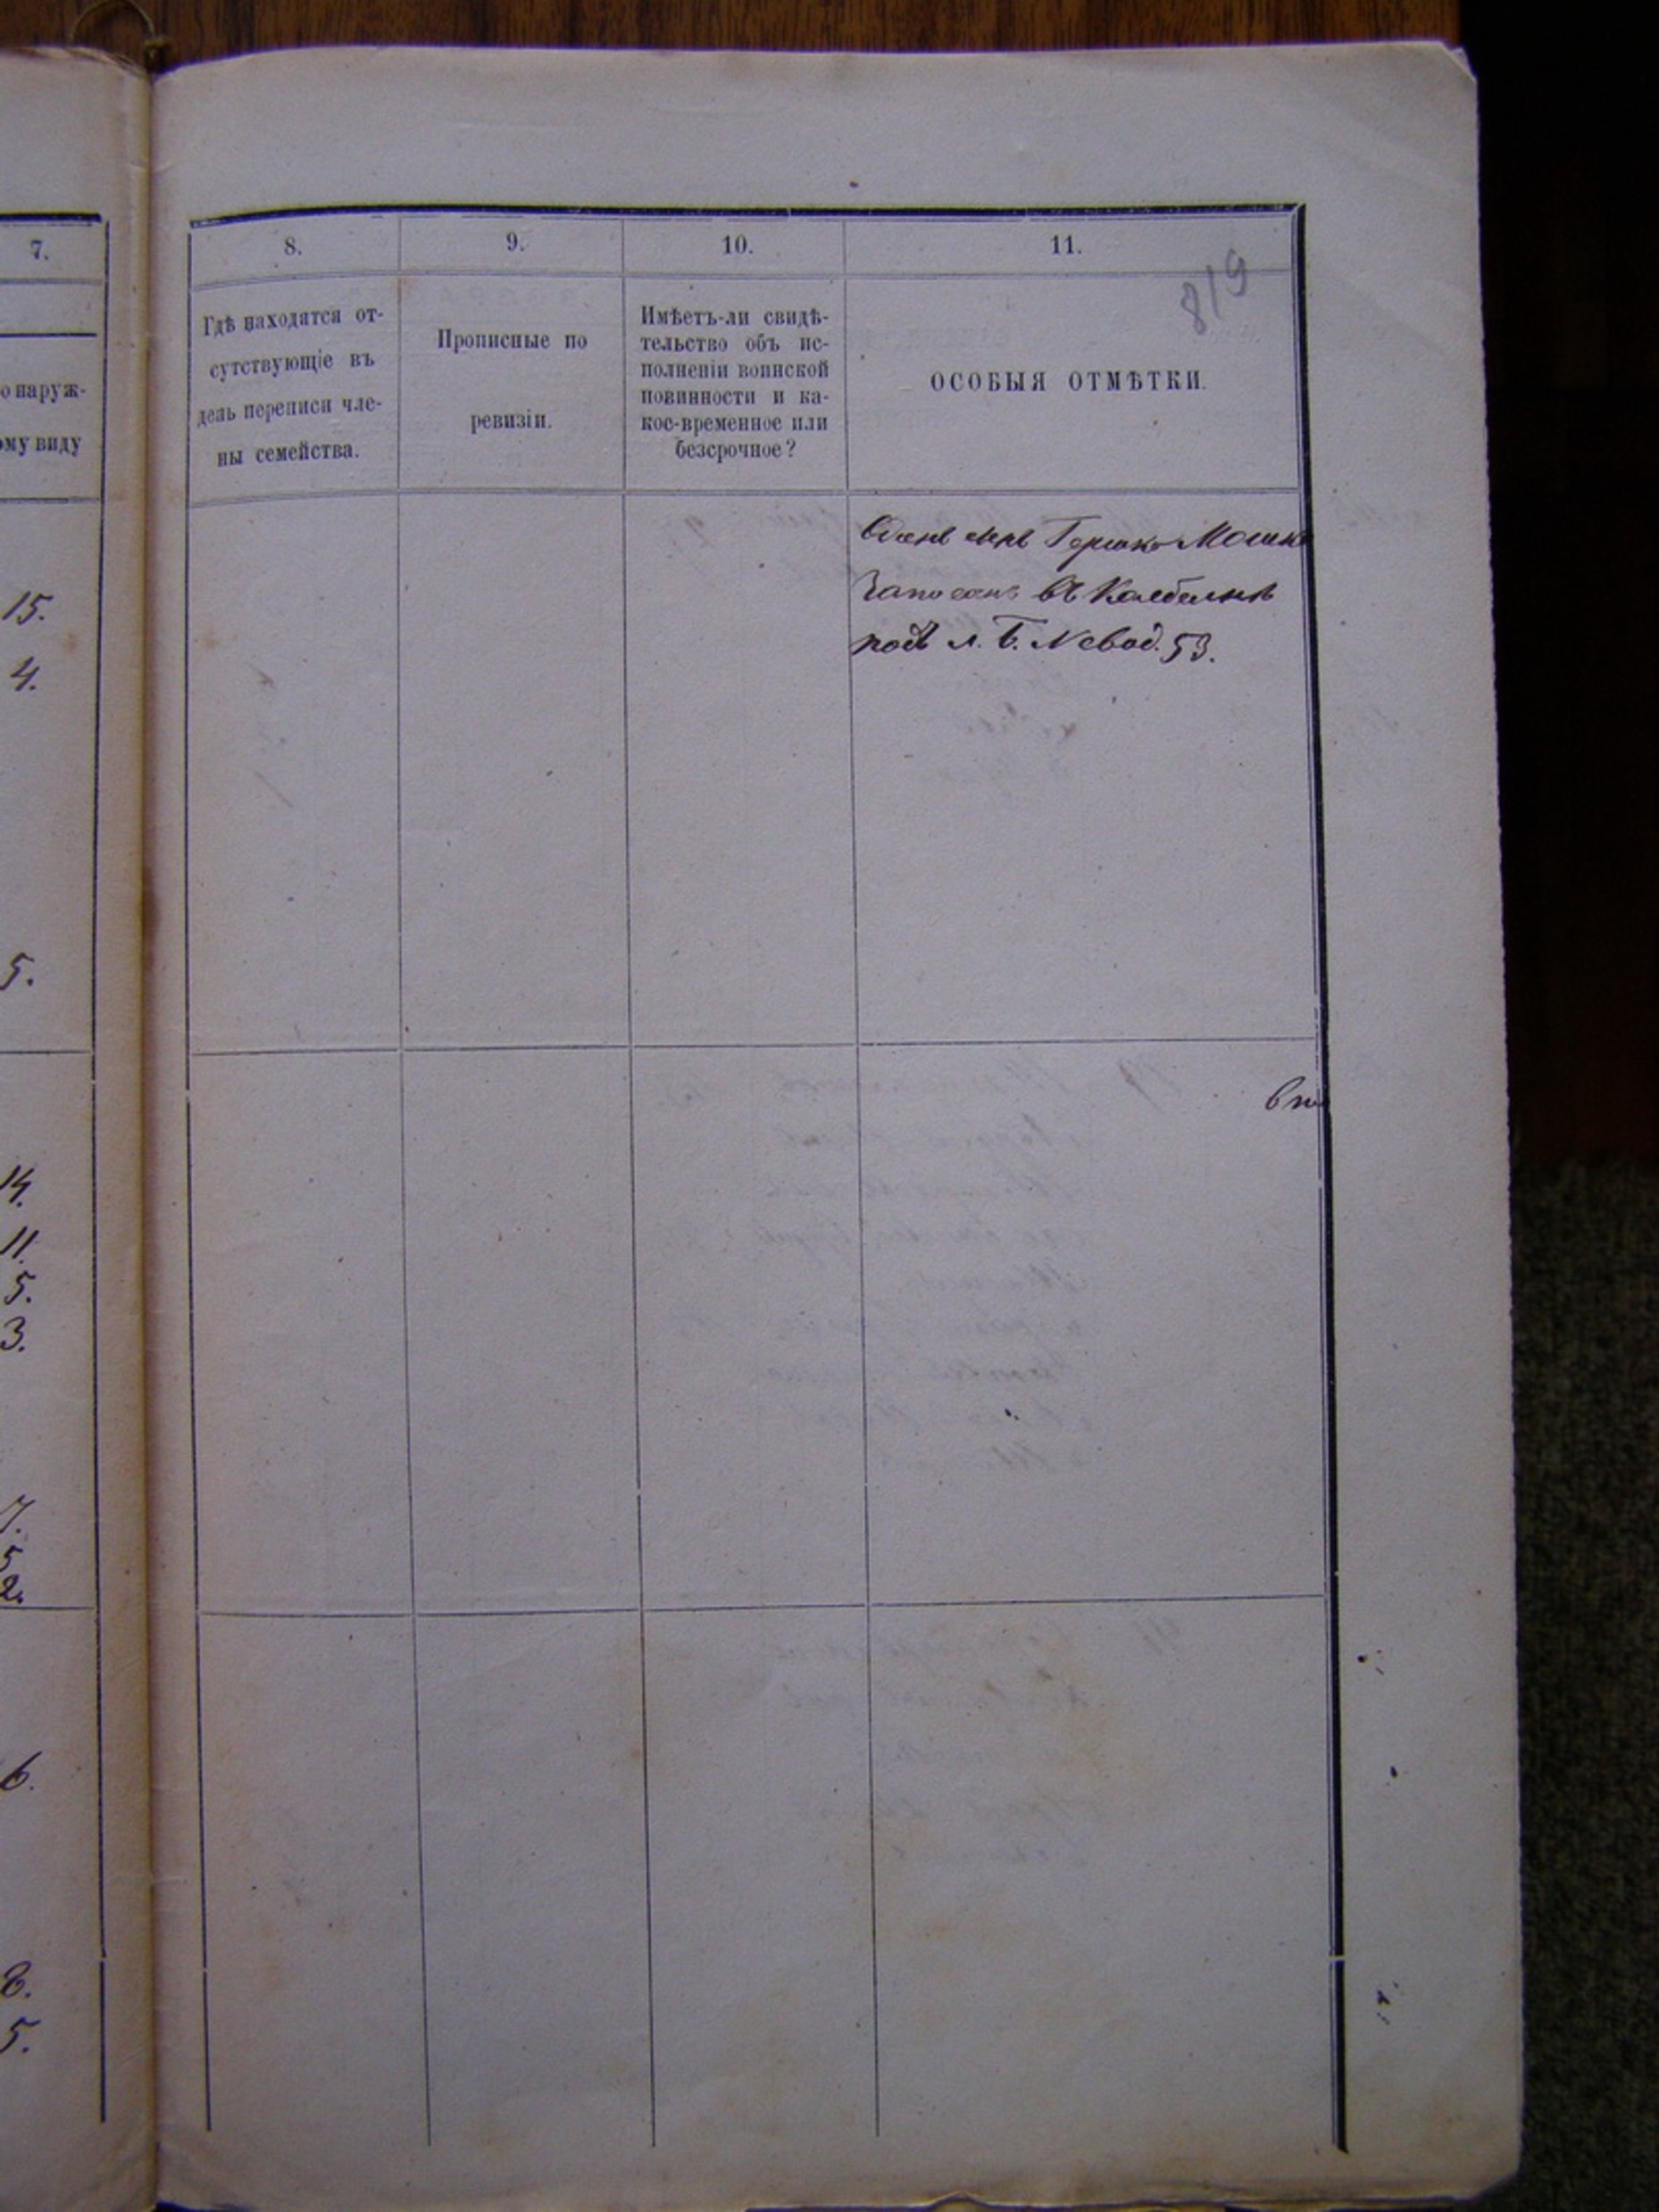 7.
8.
9.
10.
11.
819
о наруж-
ому виду
Гдѣ находятся от-
сутствующіе въ
день переписи чле-
ны семейства.
Прописные по
ревизіи.
Имѣетъ-ли свидѣ-
тельство объ ис-
полненіи воинской
повинности и ка-
кое-временное или
безсрочное?
ОСОБЫЯ ОТМѢТКИ.
Гершко Мошко
Записанъ въ
подъ л. Б. №
53.
15.
4.
5.
14.
11.
5.
3.
7.
5
2.
6.
8.
5.